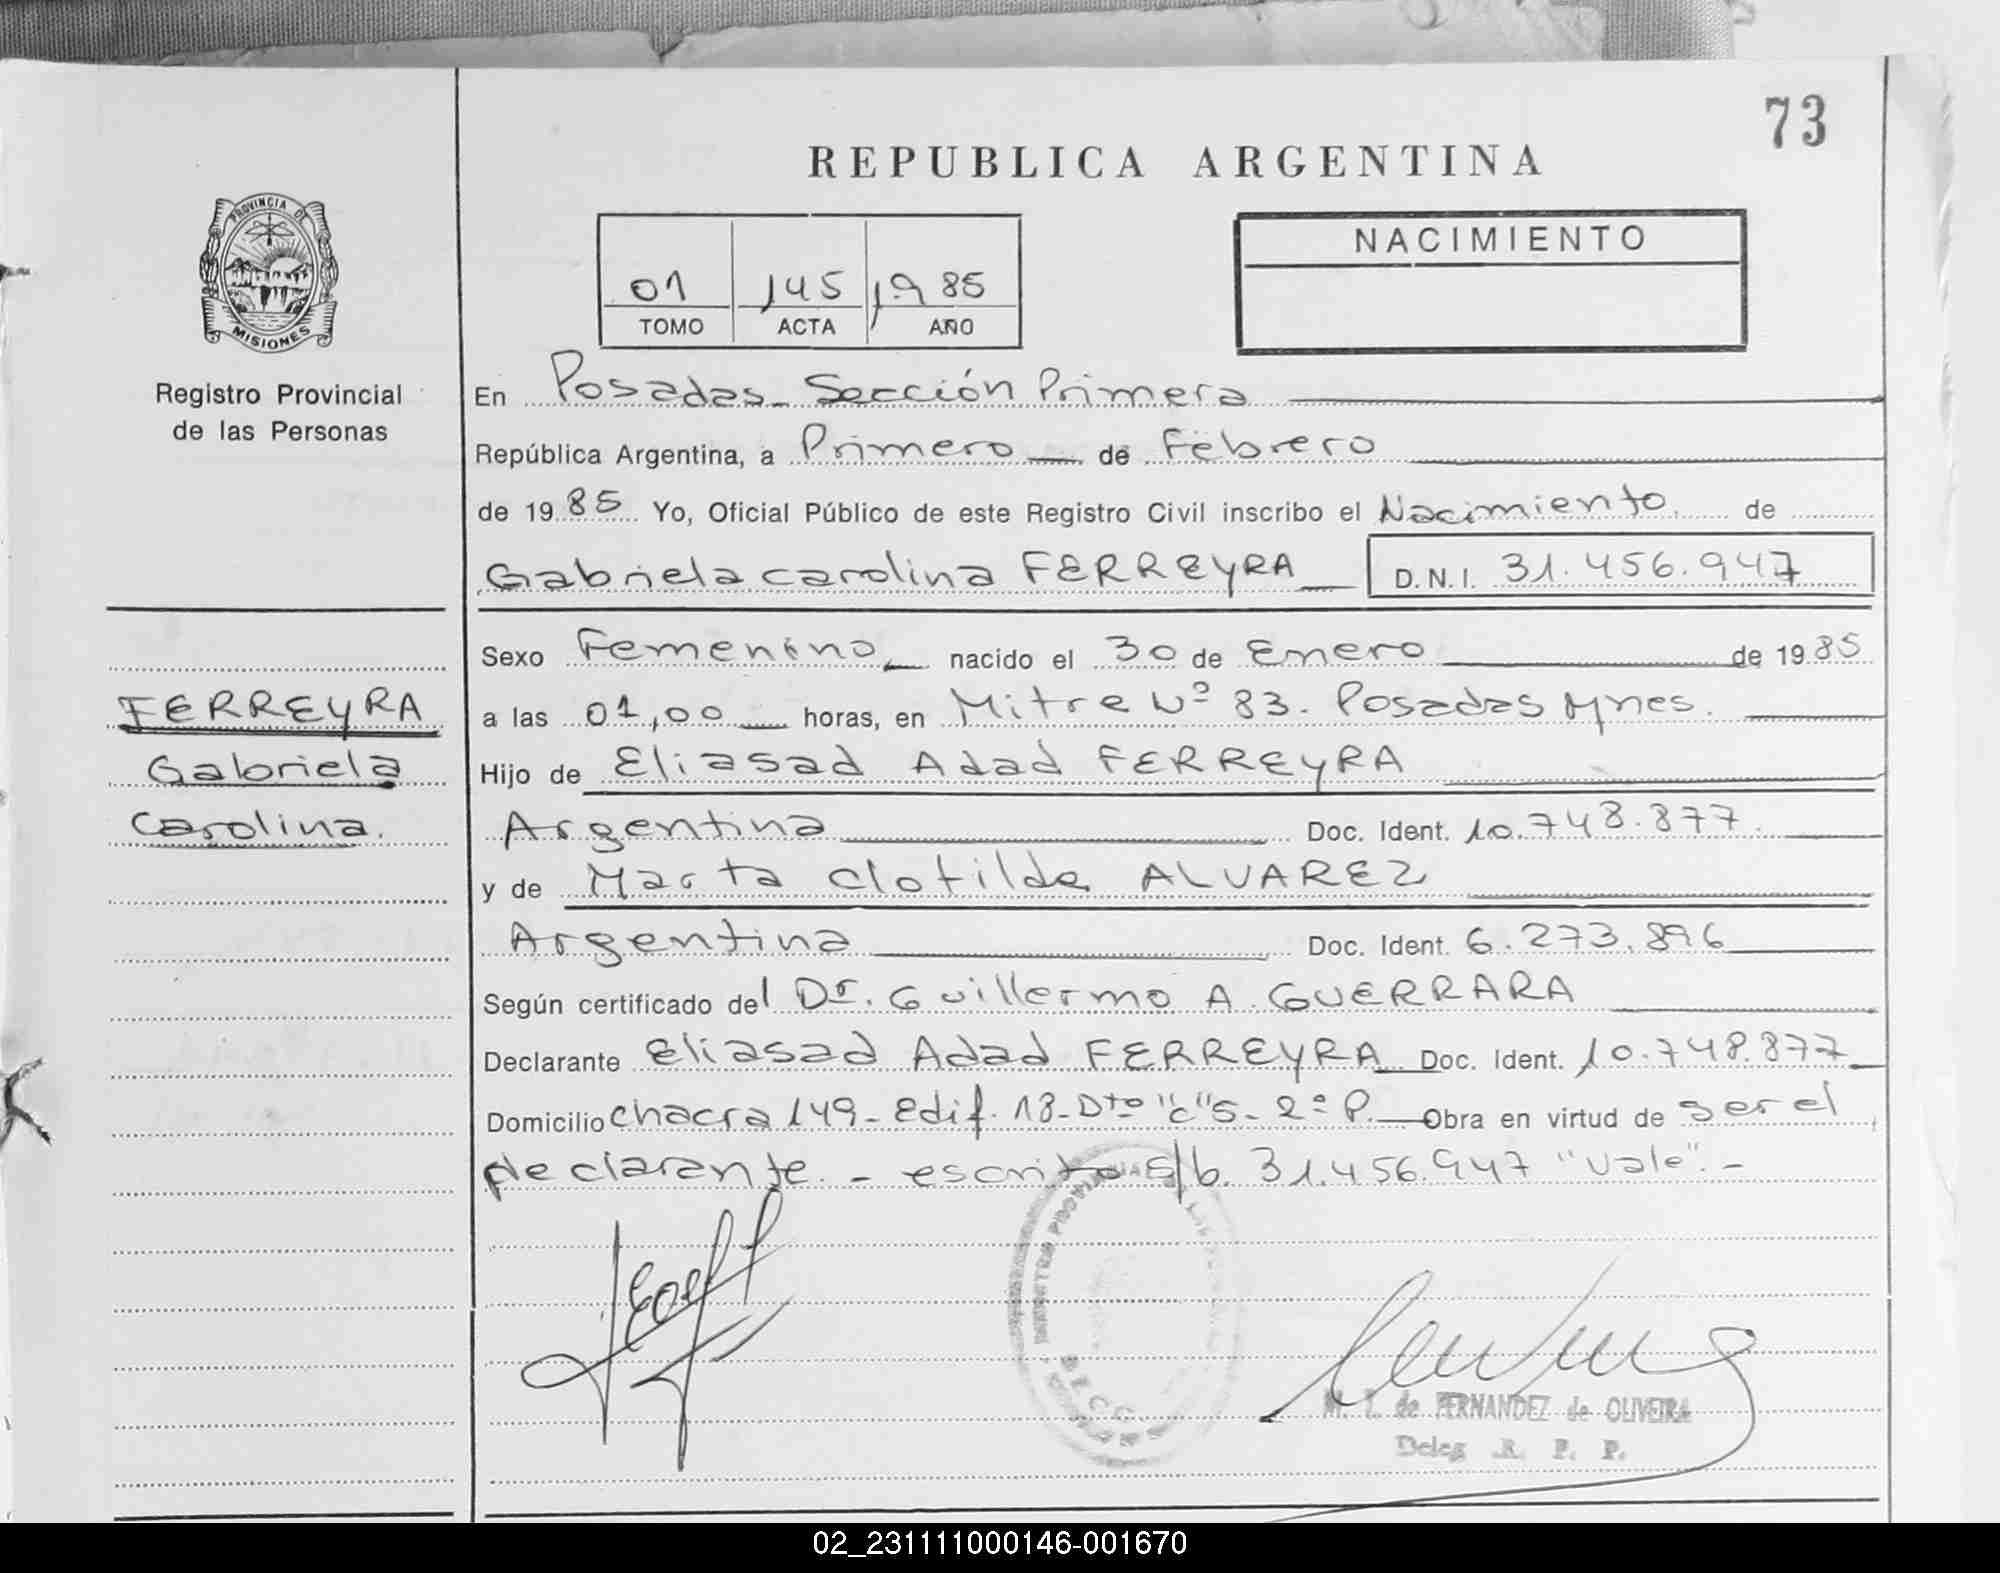 73
REPUBLICA ARGENTINA
PROVINCIA DE
MISIONES
NACIMIENTO
01 145 1985
TOMO ACTA AÑO
Registro Provincial
de las Personas
En Posadas_ Sección Primera
República Argentina, a Primero de Febrero
de 1985 Yo, Oficial Público de este Registro Civil inscribo el Nacimiento. de
Gabriela carolina FERREYRA D.N.I. 31.456.947
Sexo Femenino nacido el 30 de Enero de 1985
FERREYRA
Gabriela
Carolina.
a las 01,00 horas, en Mitre Nº 83. Posadas Mnes.
Hijo de Eliasad Adad FERREYRA
Argentina Doc. Ident. 10.748.877.
y de Marta Clotilde ALVAREZ
Argentina Doc. Ident. 6.273.896
Según certificado del Dr. Guillermo A. GUERRARA
Declarante Eliasad Adad FERREYRA Doc. Ident. 10.748.877
Domicilio chacra 149- Edif. 18- Dto "c" 5- 2º P. Obra en virtud de ser el
declarante. - escrito s/b. 31.456.947 "Vale".-
M. T. de FERNANDEZ de OLIVEIRA
Deleg R. P. P.
02_231111000146-001670